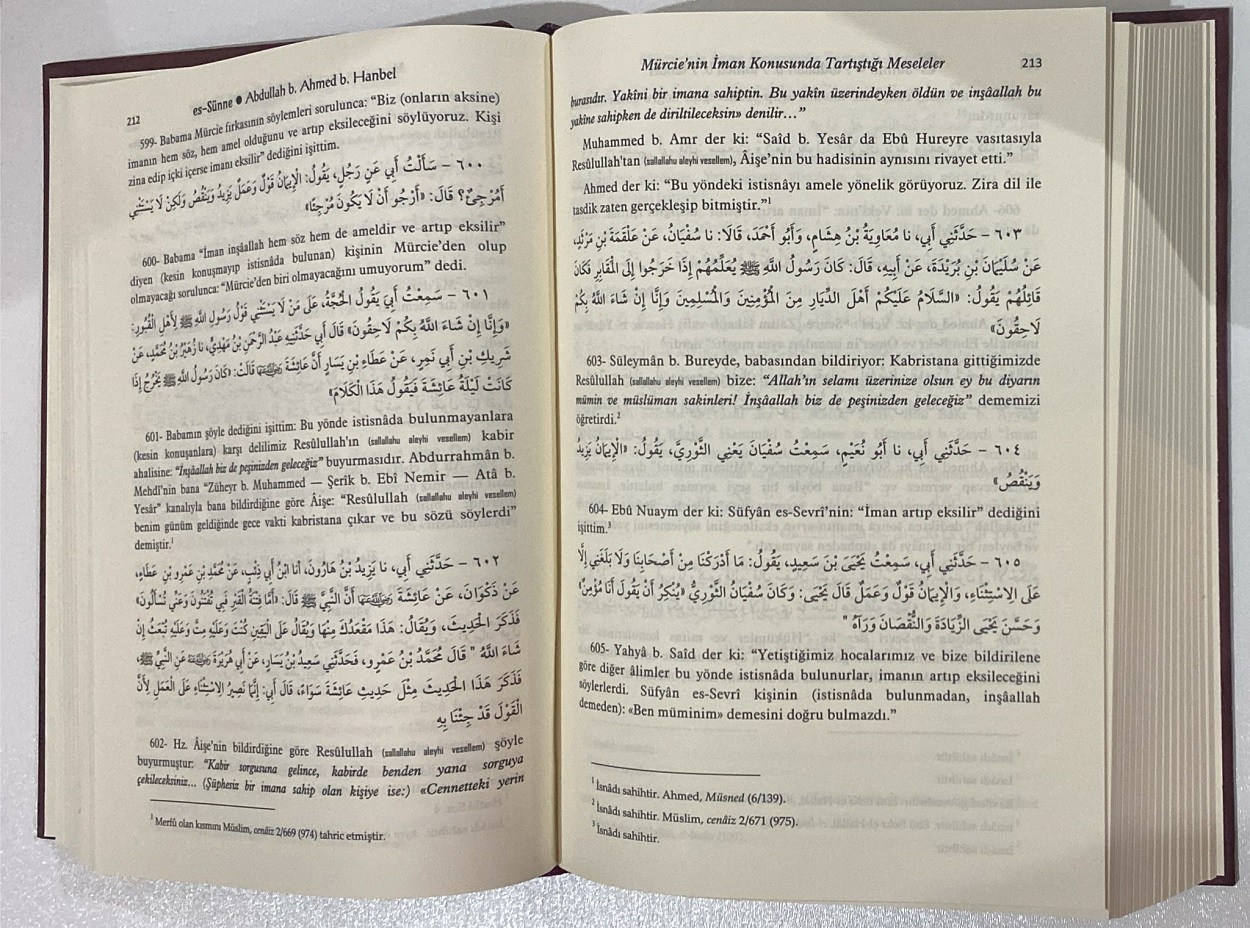 212
es-Sünne ● Abdullah b. Ahmed b. Hanbel
599- Babama Mürcie fırkasının söylemleri sorulunca: “Biz (onların aksine)
imanın hem söz, hem amel olduğunu ve artıp eksileceğini söylüyoruz. Kişi
zina edip içki içerse imanı eksilir” dediğini işittim.
٦٠٠ - سَأَلْتُ أَبِي عَنْ رَجُلٍ، يَقُولُ: الْإِيمَانُ قَوْلٌ وَعَمَلٌ يَزِيدُ وَيَنْقُصُ وَلَكِنْ لَا يَسْتَثْنِي
أَمُرْجِئٌ؟ قَالَ: «أَرْجُو أَنْ لَا يَكُونَ مُرْجِئًا»
600- Babama “İman inşâallah hem söz hem de ameldir ve artıp eksilir”
diyen (kesin konuşmayıp istisnâda bulunan) kişinin Mürcie’den olup
olmayacağı sorulunca: “Mürcie’den biri olmayacağını umuyorum” dedi.
٦٠١ - سَمِعْتُ أَبِي يَقُولُ الْحُجَّةُ، عَلَى مَنْ لَا يَسْتَثْنِي قَوْلُ رَسُولِ اللَّهِ ﷺ لِأَهْلِ الْقُبُورِ:
«وَإِنَّا إِنْ شَاءَ اللَّهُ بِكُمْ لَاحِقُونَ» قَالَ أَبِي حَدَّثَنِيهِ عَبْدُ الرَّحْمَنِ بْنُ مَهْدِيٍّ، نا زُهَيْرُ بْنُ مُحَمَّدٍ، عَنْ
شَرِيكِ بْنِ أَبِي نَمِرٍ، عَنْ عَطَاءِ بْنِ يَسَارٍ أَنَّ عَائِشَةَ قَالَتْ: «كَانَ رَسُولُ اللَّهِ ﷺ يَخْرُجُ إِذَا
كَانَتْ لَيْلَةُ عَائِشَةَ فَيَقُولُ هَذَا الْكَلَامَ»
601- Babamın şöyle dediğini işittim: Bu yönde istisnâda bulunmayanlara
(kesin konuşanlara) karşı delilimiz Resûlullah’ın (sallallahu aleyhi vesellem) kabir
ahalisine: “İnşâallah biz de peşinizden geleceğiz” buyurmasıdır. Abdurrahmân b.
Mehdî’nin bana “Züheyr b. Muhammed — Şerîk b. Ebî Nemir — Atâ b.
Yesâr” kanalıyla bana bildirdiğine göre Âişe: “Resûlullah (sallallahu aleyhi vesellem)
benim günüm geldiğinde gece vakti kabristana çıkar ve bu sözü söylerdi”
demiştir.¹
٦٠٢ - حَدَّثَنِي أَبِي، نا يَزِيدُ بْنُ هَارُونَ، أنا ابْنُ أَبِي ذِئْبٍ، عَنْ مُحَمَّدِ بْنِ عَمْرِو بْنِ عَطَاءٍ،
عَنْ ذَكْوَانَ، عَنْ عَائِشَةَ أَنَّ النَّبِيَّ ﷺ قَالَ: «أَمَّا فِتْنَةُ الْقَبْرِ فِيَّ تُفْتَنُونَ وَعَنِّي تُسْأَلُونَ»
فَذَكَرَ الْحَدِيثَ، وَيُقَالُ: هَذَا مَقْعَدُكَ مِنْهَا وَيُقَالُ عَلَى الْيَقِينِ كُنْتَ وَعَلَيْهِ مِتَّ وَعَلَيْهِ تُبْعَثُ إِنْ
شَاءَ اللَّهُ " قَالَ مُحَمَّدُ بْنُ عَمْرٍو، فَحَدَّثَنِي سَعِيدُ بْنُ يَسَارٍ، عَنْ أَبِي هُرَيْرَةَ عَنِ النَّبِيِّ ﷺ،
فَذَكَرَ هَذَا الْحَدِيثَ مِثْلَ حَدِيثِ عَائِشَةَ سَوَاءً، قَالَ أَبِي: إِنَّمَا نَصِيرُ الِاسْتِثْنَاءِ عَلَى الْعَمَلِ لِأَنَّ
الْقَوْلَ قَدْ جِئْنَا بِهِ
602- Hz. Âişe’nin bildirdiğine göre Resûlullah (sallallahu aleyhi vesellem) şöyle
buyurmuştur: “Kabir sorgusuna gelince, kabirde benden yana sorguya
çekileceksiniz... (Şüphesiz bir imana sahip olan kişiye ise:) «Cennetteki yerin
¹ Merfû olan kısmını Müslim, cenâiz 2/669 (974) tahric etmiştir.
Mürcie’nin İman Konusunda Tartıştığı Meseleler 213
burasıdır. Yakîni bir imana sahiptin. Bu yakîn üzerindeyken öldün ve inşâallah bu
yakîne sahipken de diriltileceksin» denilir...”
Muhammed b. Amr der ki: “Saîd b. Yesâr da Ebû Hureyre vasıtasıyla
Resûlullah'tan (sallallahu aleyhi vesellem), Âişe’nin bu hadisinin aynısını rivayet etti.”
Ahmed der ki: “Bu yöndeki istisnâyı amele yönelik görüyoruz. Zira dil ile
tasdik zaten gerçekleşip bitmiştir.”¹
٦٠٣ - حَدَّثَنِي أَبِي، نا مُعَاوِيَةُ بْنُ هِشَامٍ، وَأَبُو أَحْمَدَ، قَالَا: نا سُفْيَانُ، عَنْ عَلْقَمَةَ بْنِ مَرْثَدٍ،
عَنْ سُلَيْمَانَ بْنِ بُرَيْدَةَ، عَنْ أَبِيهِ، قَالَ: كَانَ رَسُولُ اللَّهِ ﷺ يُعَلِّمُهُمْ إِذَا خَرَجُوا إِلَى الْمَقَابِرِ فَكَانَ
قَائِلُهُمْ يَقُولُ: «السَّلَامُ عَلَيْكُمْ أَهْلَ الدِّيَارِ مِنَ الْمُؤْمِنِينَ وَالْمُسْلِمِينَ وَإِنَّا إِنْ شَاءَ اللَّهُ بِكُمْ
لَاحِقُونَ»
603- Süleymân b. Bureyde, babasından bildiriyor: Kabristana gittiğimizde
Resûlullah (sallallahu aleyhi vesellem) bize: “Allah’ın selamı üzerinize olsun ey bu diyarın
mümin ve müslüman sakinleri! İnşâallah biz de peşinizden geleceğiz” dememizi
öğretirdi.²
٦٠٤ - حَدَّثَنِي أَبِي، نا أَبُو نُعَيْمٍ، سَمِعْتُ سُفْيَانَ يَعْنِي الثَّوْرِيَّ، يَقُولُ: «الْإِيمَانُ يَزِيدُ
وَيَنْقُصُ»
604- Ebû Nuaym der ki: Süfyân es-Sevrî’nin: “İman artıp eksilir” dediğini
işittim.³
٦٠٥ - حَدَّثَنِي أَبِي، سَمِعْتُ يَحْيَى بْنَ سَعِيدٍ، يَقُولُ: مَا أَدْرَكْنَا مِنْ أَصْحَابِنَا وَلَا بَلَغَنِي إِلَّا
عَلَى الِاسْتِثْنَاءِ، وَالْإِيمَانُ قَوْلٌ وَعَمَلٌ قَالَ يَحْيَى: وَكَانَ سُفْيَانُ الثَّوْرِيُّ «يُنْكِرُ أَنْ يَقُولَ أَنَا مُؤْمِنٌ»
وَحَسَّنَ يَحْيَى الزِّيَادَةَ وَالنُّقْصَانَ وَرَآهُ "
605- Yahyâ b. Saîd der ki: “Yetiştiğimiz hocalarımız ve bize bildirilene
göre diğer âlimler bu yönde istisnâda bulunurlar, imanın artıp eksileceğini
söylerlerdi. Süfyân es-Sevrî kişinin (istisnâda bulunmadan, inşâallah
demeden): «Ben müminim» demesini doğru bulmazdı.”
¹ İsnâdı sahihtir. Ahmed, Müsned (6/139).
² İsnâdı sahihtir. Müslim, cenâiz 2/671 (975).
³ İsnâdı sahihtir.